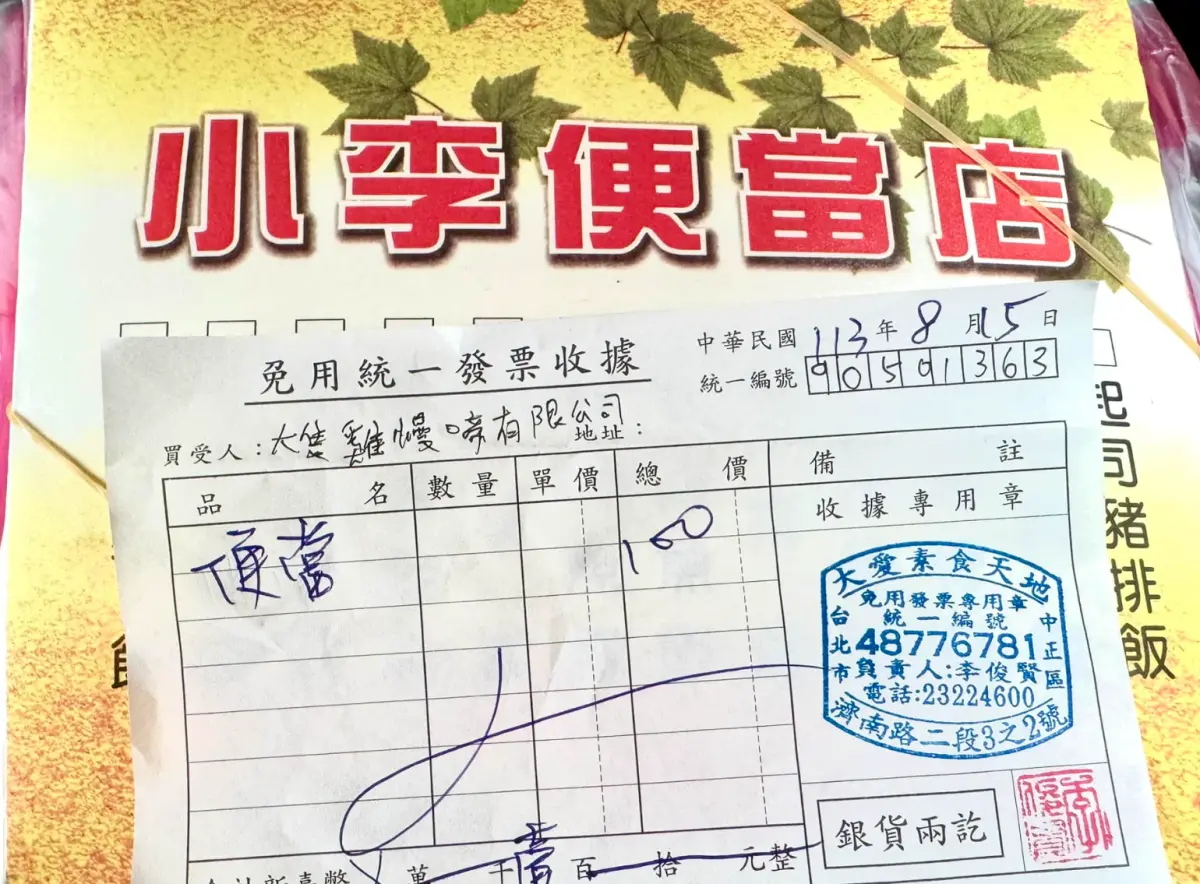 小李便當店
中華民國 113 年 8 月 15 日
免用統一發票收據
統一編號 90591363
買受人：大隻雞慢啼有限公司
地址：
品名 數量 單價 總價 備註
收據專用章
便當 100
大愛素食天地
免用發票專用章
統一編號
台北市 48776781 中正區
負責人:李俊賢
電話:23224600
濟南路二段3之2號
銀貨兩訖
合計新臺幣 萬 千 壹 百 拾 元整
起司豬排飯